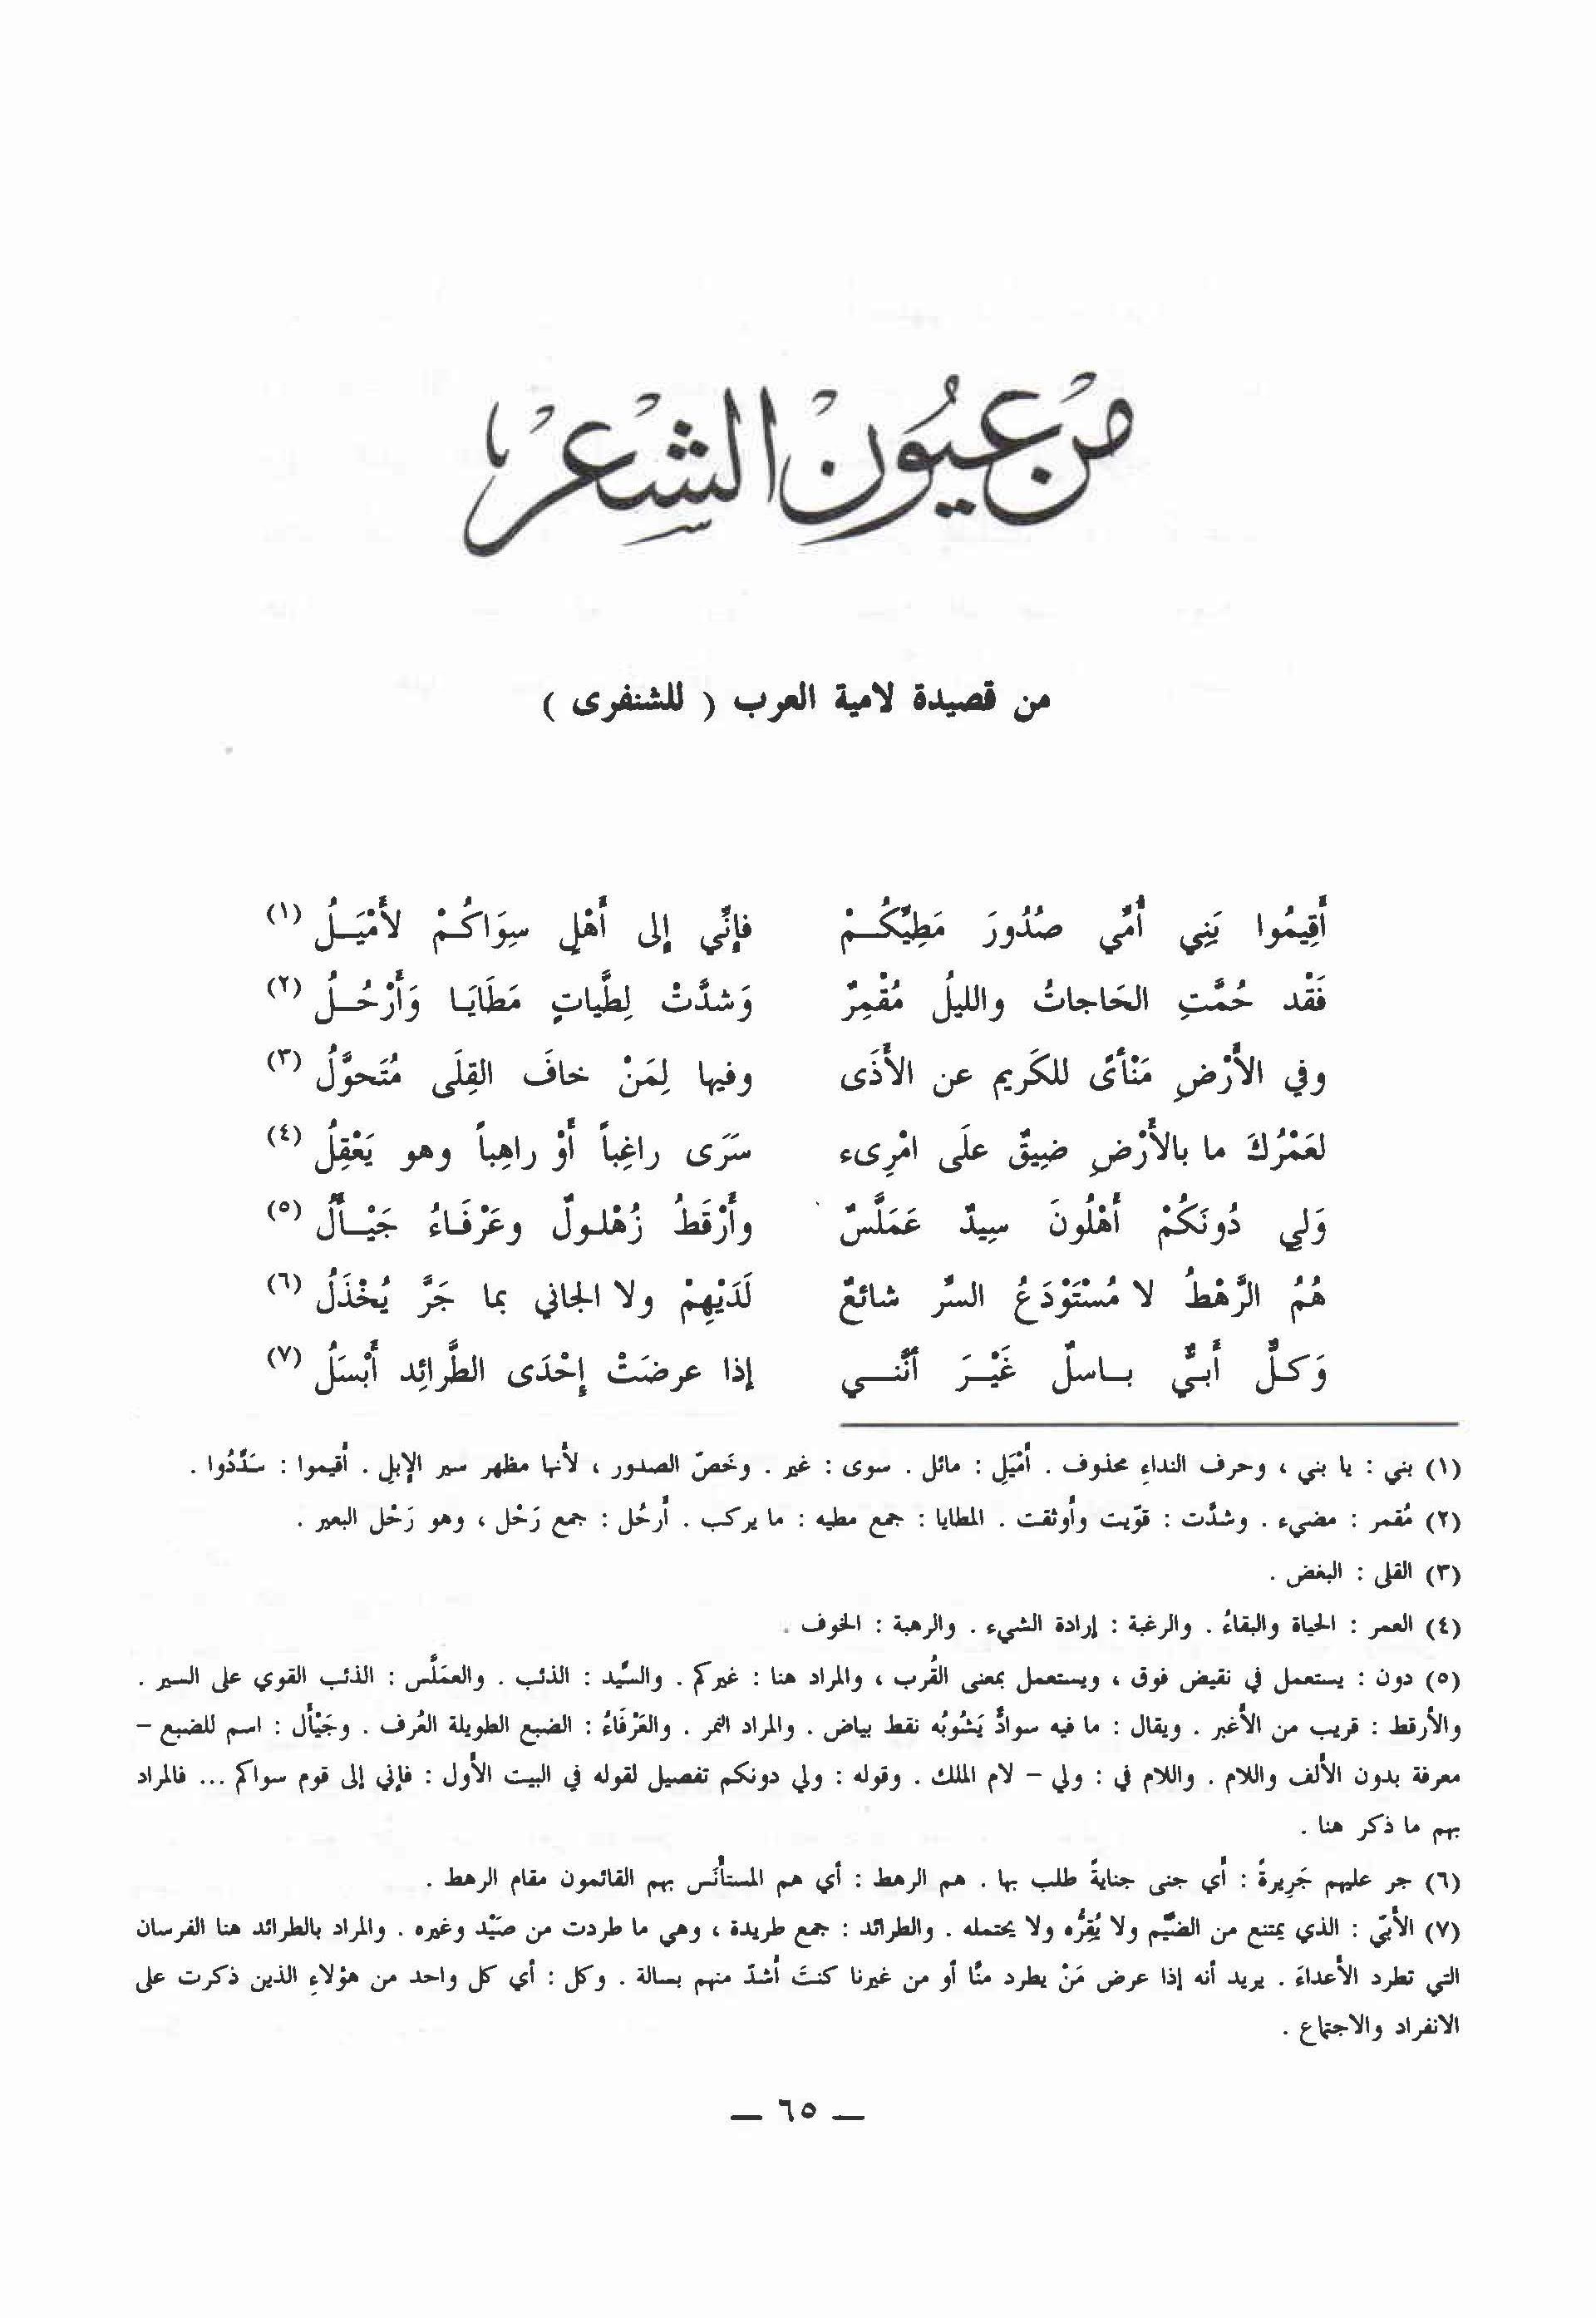 من عيون الشعر
من قصيدة لامية العرب ( للشنفرى )
أَقِيمُوا بَنِي أُمِّي صُدُورَ مَطِيِّكُمْ فإِنِّي إِلى أَهْلٍ سِوَاكُمْ لأَمْيَلُ (١)
فَقَْد حُمَّتِ الحَاجاتُ والليلُ مُقْمِرٌ وَشدَّتْ لِطَّياتٍ مَطَايَا وَأَرْحُلُ (٢)
وفي الأَرْضِ مَنْأىً للكَريم عن الأَذَى وفيها لِمَنْ خافَ القِلَى مُتَحوَّلُ (٣)
لعَمْرُكَ ما بالأَرْضِ ضِيقٌ علَى امْرِىء سَرَى راغِباً أَوْ راهِباً وهو يَعْقِلُ (٤)
وَلي دُونَكُمْ أَهْلُونَ سِيدٌ عَمَلَّسٌ وأَرْقَطُ زُهْلولٌ وعَرْفَاءُ جَيْأَلُ (٥)
هُمُ الرَّهْطُ لا مُسْتَوْدَعُ السرِّ شائعٌ لَدَيْهِمْ ولا الجاني بما جَرَّ يُخْذَلُ (٦)
وَكلٌّ أَبيٌّ باسلٌ غَيْرَ أنَّني إذا عرضَتْ إِحْدَى الطَّرائِد أَبْسَلُ (٧)
(١) بني : يا بني ، وحرف النداءِ محذوف . أَمْيَلِ : مائل . سوى : غير . وخَصّ الصدور ، لأنها مظهر سير الإبلِ . أقيموا : سَدِّدُوا .
(٢) مُقمر : مضيء . وشدَّت : قوّيت وأُوثقت . المطايا : جمع مطيه : ما يركب . أَرحُل : جمع رَحْل ، وهو رَحْل البعير .
(٣) القلى : البغض .
(٤) العمر : الحياة والبقاءُ . والرغبة : إرادة الشيء . والرهبة : الخوف .
(٥) دون : يستعمل في نقيض فوق ، ويستعمل بمعنى القُرب ، والمراد هنا : غيركم . والسِّيد : الذئب . والعمَلَّس : الذئب القوي على السير .
والأرقط : قريب من الأَغبر . ويقال : ما فيه سوادٌ يَشُوبُه نقط بياض . والمراد النمر . والعَرْفَاءُ : الضبع الطويلة العُرف . وجَيْأَل : اسم للضبع –
معرفة بدون الألف واللام . واللام في : ولي – لام الملك . وقوله : ولي دونكم تفصيل لقوله في البيت الأول : فإني إلى قوم سواكم ... فالمراد
بهم ما ذكر هنا .
(٦) جر عليهم جَرِيرةً : أي جنى جنايةً طلب بها . هم الرهط : أي هم المستأنَس بهم القائمون مقام الرهط .
(٧) الأَبيّ : الذي يمتنع من الضَّيْم ولا يُقِرُّه ولا يحتمله . والطرائد : جمع طريدة ، وهي ما طردت من صَيْد وغيره . والمراد بالطرائد هنا الفرسان
التي تطرد الأَعداءَ . يريد أنه إذا عرض مَنْ يطرد منَّا أو من غيرنا كنتَ أشدّ منهم بسالة . وكل : أي كل واحد من هؤلاءِ الذين ذكرت على
الانفراد والاجتماع .
— ٦٥ —